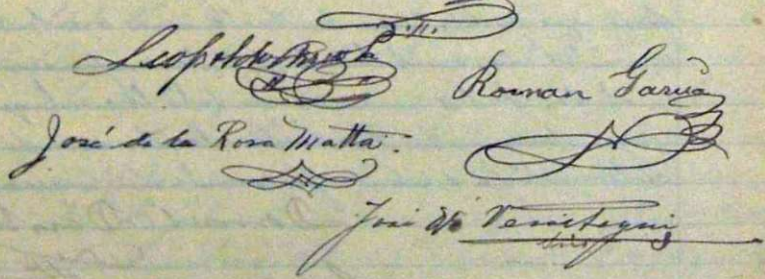 Leopoldo
Roman García
José de la Rosa Matta.
José Verastegui